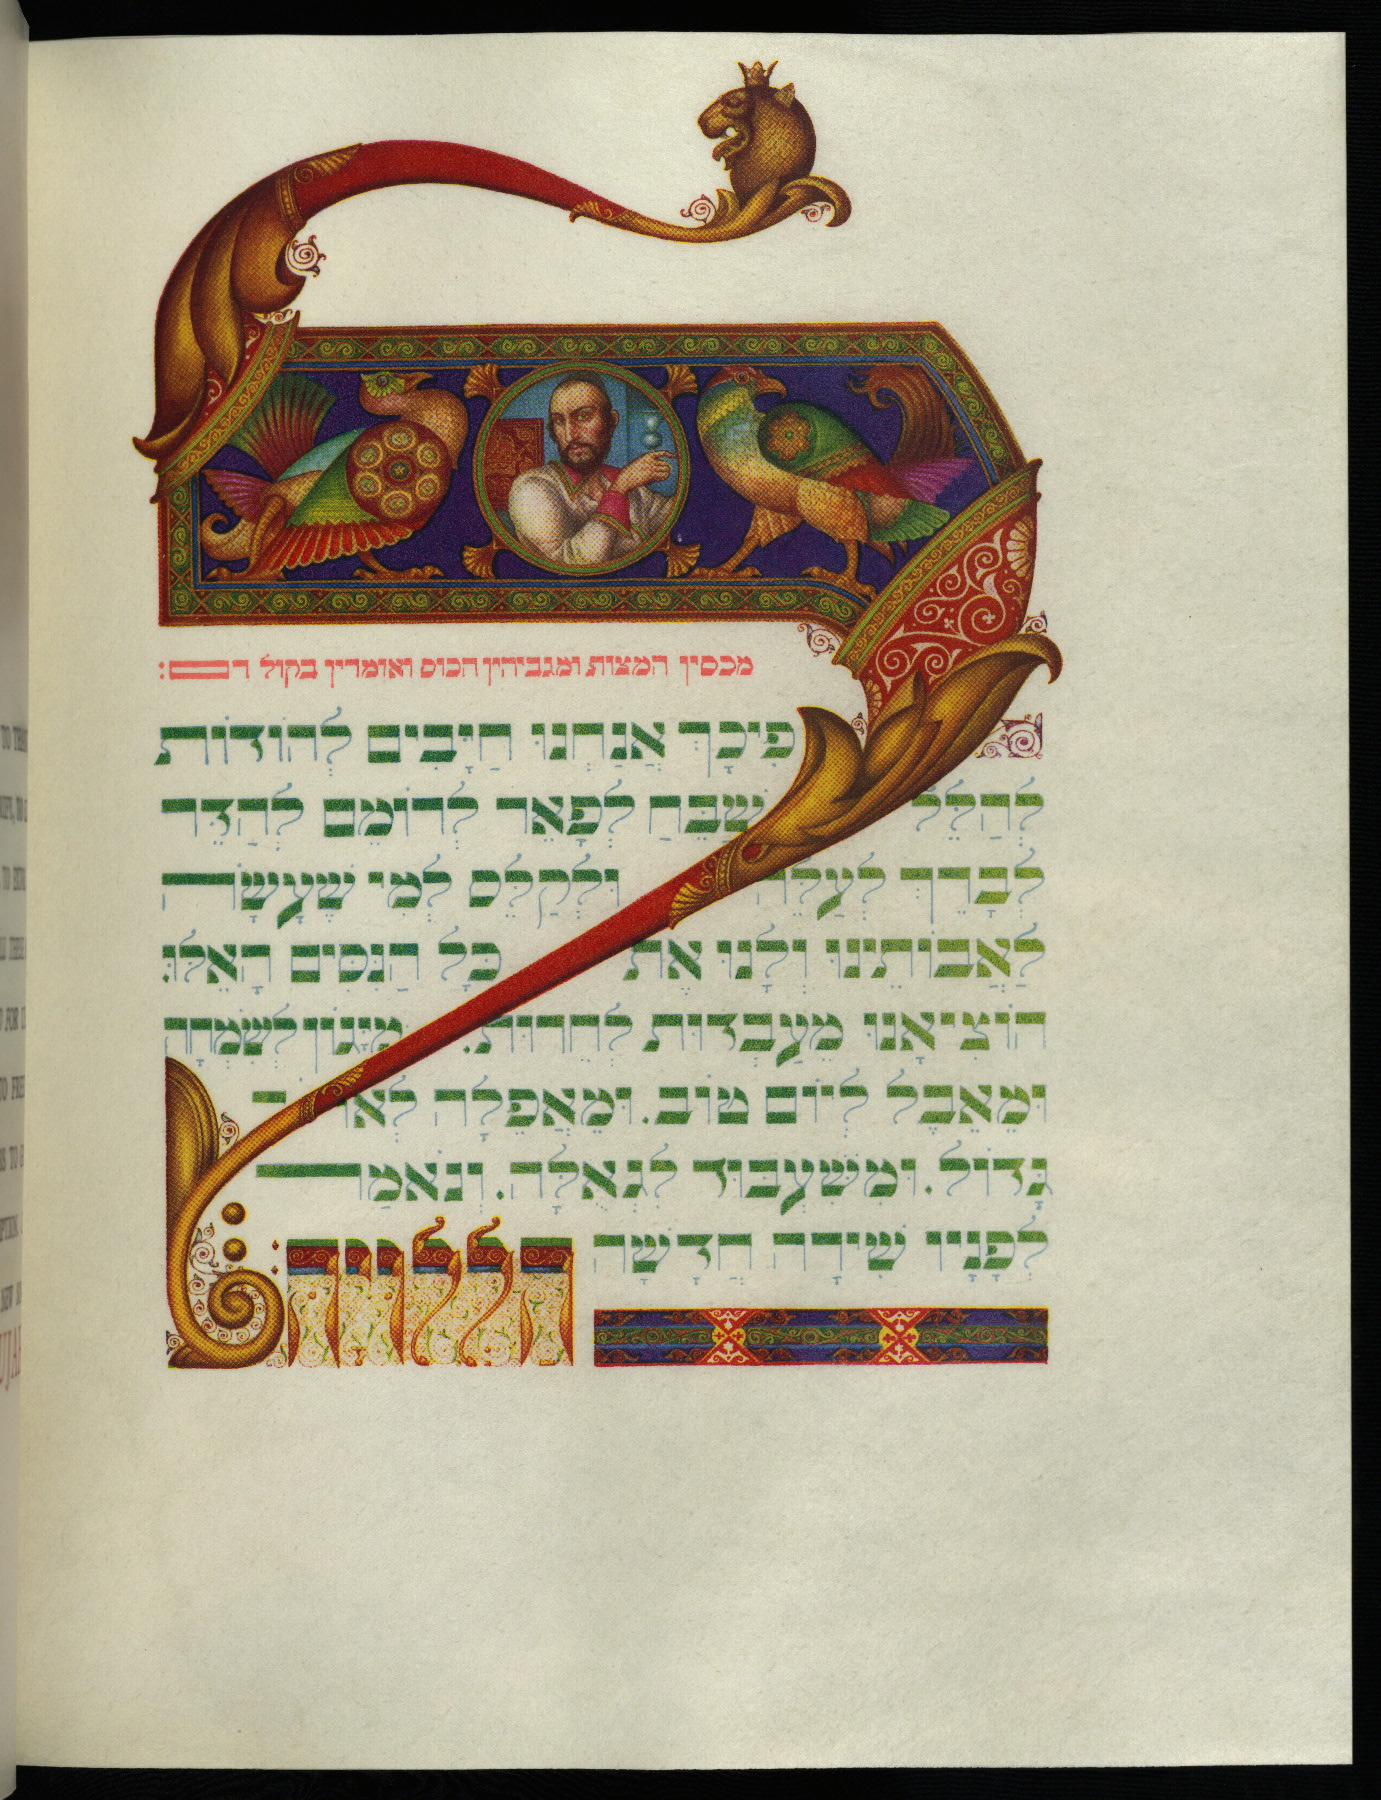 מכסין המצות ומגביהין הכוס ואומרין בקול רם:
לְפִיכָךְ אֲנַחְנוּ חַיָּבִים לְהוֹדוֹת
לְהַלֵּל לְשַׁבֵּחַ לְפָאֵר לְרוֹמֵם לְהַדֵּר
לְבָרֵךְ לְעַלֵּה וּלְקַלֵּס לְמִי שֶׁעָשָׂה
לַאֲבוֹתֵינוּ וְלָנוּ אֶת כָּל הַנִּסִּים הָאֵלוּ:
הוֹצִיאָנוּ מֵעַבְדוּת לְחֵרוּת. מִיָּגוֹן לְשִׂמְחָה
וּמֵאֵבֶל לְיוֹם טוֹב. וּמֵאֲפֵלָה לְאוֹר
גָּדוֹל. וּמִשִּׁעְבּוּד לִגְאֻלָּה. וְנֹאמַר
לְפָנָיו שִׁירָה חֲדָשָׁה
הללויה: